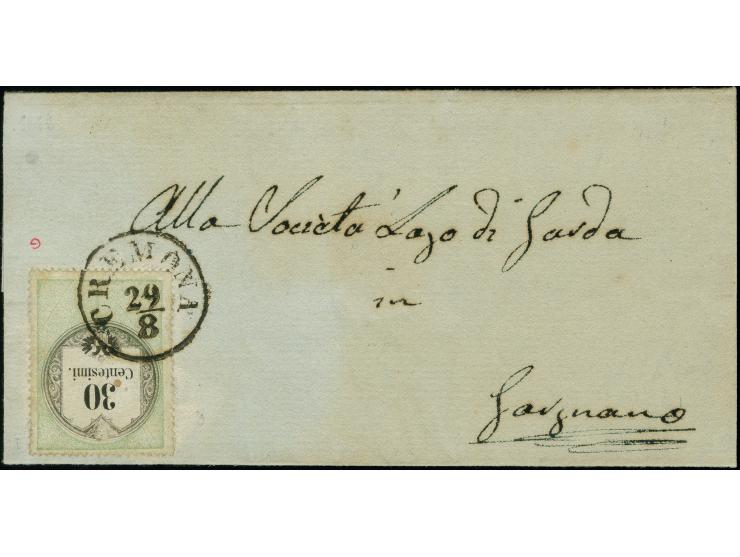 Alla Società Lago di Garda
in
Gargnano
CREMONA
29
8
30
Centesimi.